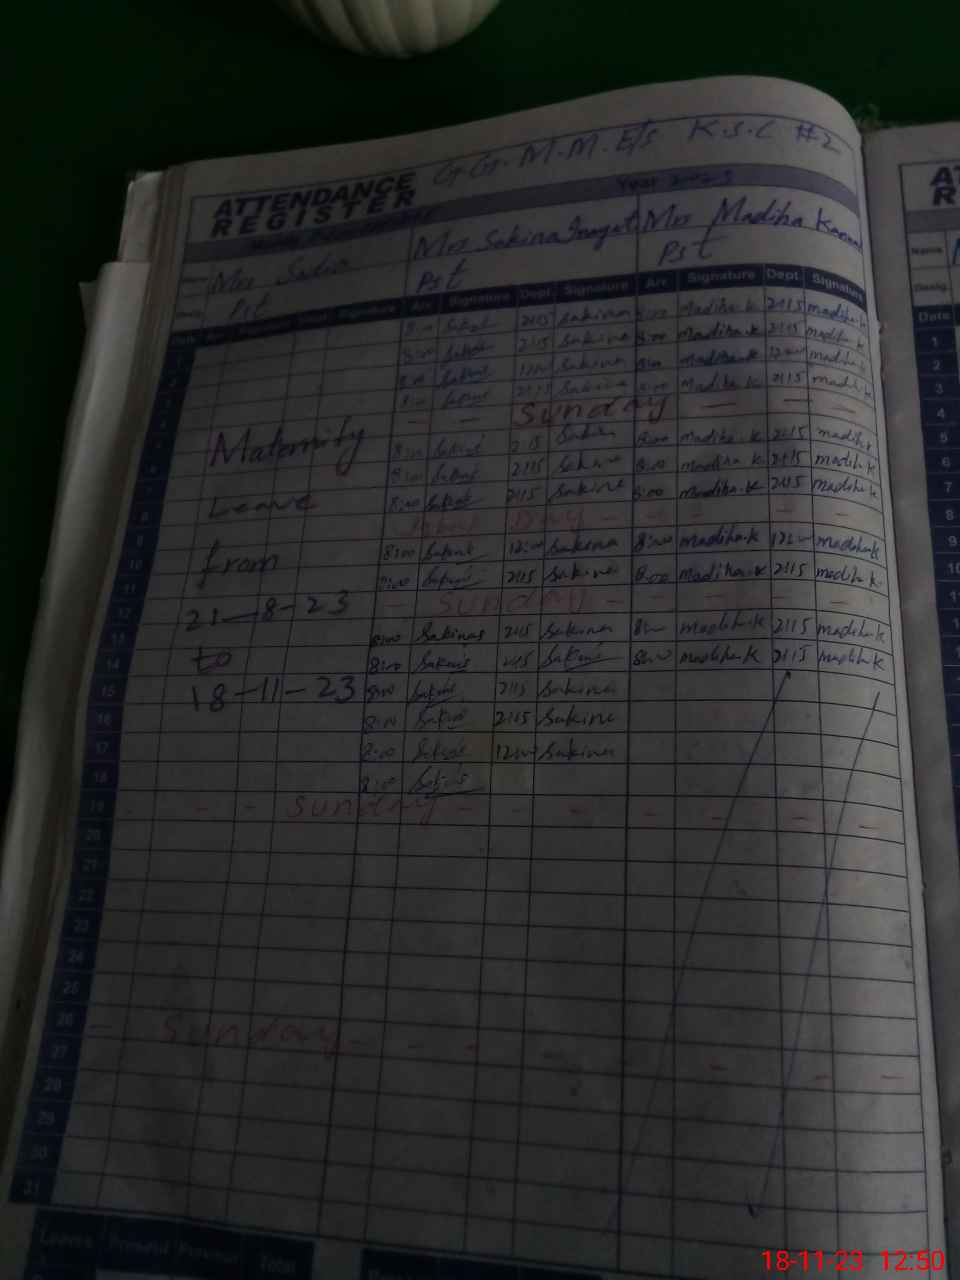 G.G.M.M.E/S K.S.C #2
ATTENDANCE
REGISTER
Year 2023
Mrs Sadia Mrs Sakina Inayat Mrs Madiha Kanwal
Pst Pst Pst
Date Arr. Signature Dept. Signature Arr. Signature Dept. Signature Arr. Signature Dept. Signature
1 8:00 Sakina 2:15 Sakina 8:00 Madiha.K 2:15 madiha.K
2 8:00 Sakina 2:15 Sakina 8:00 Madiha.K 2:15 madiha.K
3 8:00 Sakina 12:00 Sakina 8:00 Madiha.K 12:00 madiha.K
4 8:00 Sakina 2:15 Sakina 8:00 Madiha.K 2:15 madiha.K
5 - - Sunday - - -
Maternity
6 8:00 Sakina 2:15 Sakina 8:00 madiha.K 2:15 madiha.K
7 8:00 Sakina 2:15 Sakina 8:00 madiha.K 2:15 madiha.K
Leave
8 8:00 Sakina 2:15 Sakina 8:00 madiha.K 2:15 madiha.K
9 Iqbal Day - - - - -
from
10 8:00 Sakina 12:00 Sakina 8:00 madiha.K 12:00 madiha.K
11 8:00 Sakina 2:15 Sakina 8:00 madiha.K 2:15 madiha.K
21-8-23
12 - Sunday - - - - -
13 8:00 Sakina 2:15 Sakina 8:00 madiha.K 2:15 madiha.K
to
14 8:00 Sakina 2:15 Sakina 8:00 madiha.K 2:15 madiha.K
18-11-23
15 8:00 Sakina 2:15 Sakina
16 8:00 Sakina 2:15 Sakina
17 8:00 Sakina 12:00 Sakina
18 8:00 Sakina
19 - - - Sunday - - - - - - -
20
21
22
23
24
25
26 - Sunday - - - - - - -
27
28
29
30
31
Leaves Present Previous Total
AT
R
Name
Desig.
Date
1
2
3
4
5
6
7
8
9
10
18-11-23 12:50